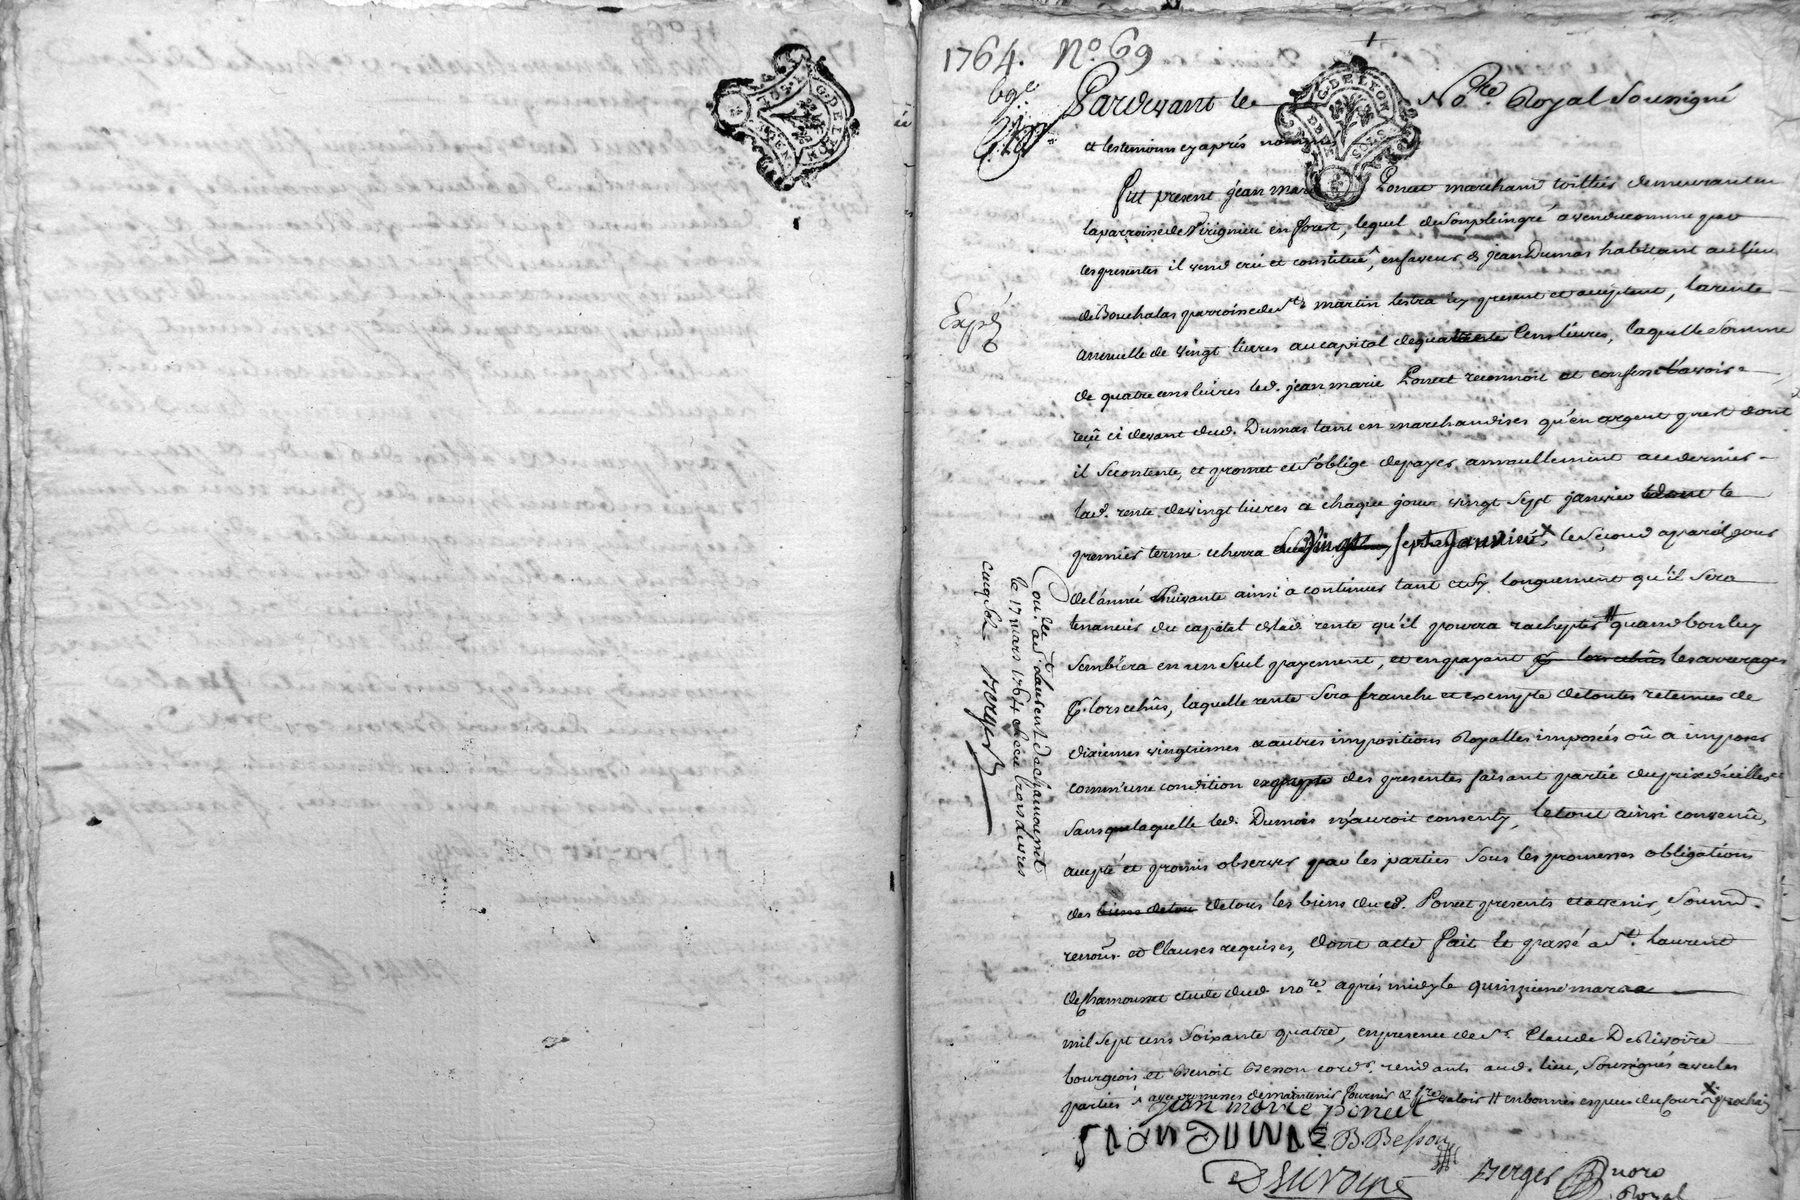 1764. N.º 69
69.e
G. DE LYON
Pardevant le No.re Royal Soussigné
et les temoins cy aprés nommés
fut present jean marie Poncet marchand toillier demeurant en
la parroisse de Virignieu en forest, lequel de son plein gré a vendu comme par
ces presentes il vend crée et constitüe, en faveur de jean Dumas habitant au lieu
de Bouchalas parroisse de St. martin lestra icy present et acceptent, la rente
Expé
annuelle de vingt livres au capital de quatre Cens livres, laquelle Somme
de quatre cens livres led. jean marie Poncet reconnoit et confesse avoir
reçû ci devant dud. Dumas tant en marchandises qu'en argent prest dont
il se contente, et promet et s'oblige de payer annuellement aud. Dumas
lad. rente de vingt livres a chaque jour vingt sept janvier dont le
premier terme echerra Vingt sept Janvier, le Second a pareil jour
de l'année Suivante ainsi a continuer tant et sy longuement qu'il sera
tenancier du capital de lad. rente qu'il pourra rachepter # quand bon luy
Semblera en un Seul payement, et en payant les arrerages
p. lors echûs, laquelle rente Sera franche et exempte de toutes retenues de
dixiemes vingtiemes et autres impositions Royalles imposées où a imposer
comm'une condition expresse des presentes faisant partie du prix d'icelles et
sans quoi laquelle led. Dumas n'auroit consenty, le tout ainsi convenû,
accepté et promis observer par les parties Sous les promesses obligations
des biens de tou de tous les biens dud. Poncet presents et avenir, Soumd.
renons. et Clauses requises, dont acte fait et passé a St. Laurent
de Chamousset etude dud. no.re aprés midy le quinzieme mars
mil sept cens Soixante quatre, en presence de Sr. Claude DeRivoire
bourgeois et Benoit Besson cordr. residants aud. lieu, Soussignés avec les
parties # avec promesses de maintenir fournir & fre. valoir # en bonnes especes du cours X prochain
Con.lle a St. Laurent de chamousset
le 17 mars 1764 Reçu trois livres
cinq sols Berger
jean marie poncet
JEAN DUMAS B. Besson
DeRivoire Berger noro
Royal